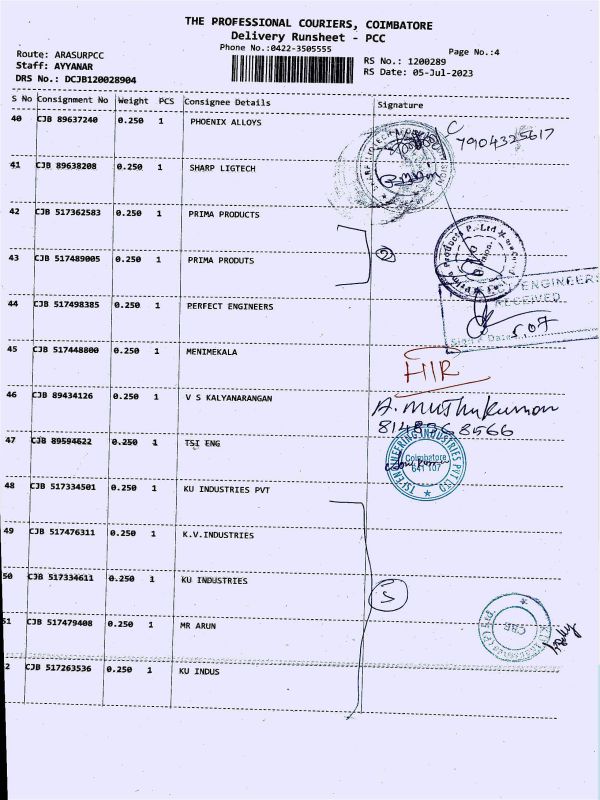 THE PROFESSIONAL COURIERS, COIMBATORE
Delivery Runsheet - PCC
Phone No.:0422-3505555
Page No.:4
Route: ARASURPCC
RS No.: 1200289
Staff: AYYANAR
RS Date: 05-Jul-2023
DRS No.: DCJB120028904
S No Consignment No Weight PCS Consignee Details Signature
40 CJB 89637240 0.250 1 PHOENIX ALLOYS
C
7904325617
41 CJB 89638208 0.250 1 SHARP LIGTECH
42 CJB 517362583 0.250 1 PRIMA PRODUCTS
43 CJB 517489005 0.250 1 PRIMA PRODUTS
2
Prima Products P. Ltd
ENGINEERS
RECEIVED
44 CJB 517498385 0.250 1 PERFECT ENGINEERS
Sign & Date
45 CJB 517448800 0.250 1 MENIMEKALA
46 CJB 89434126 0.250 1 V S KALYANARANGAN
A. Muthukumar
47 CJB 89594622 0.250 1 TSI ENG
TSI ENGINEERING INDUSTRIES PVT LTD
Coimbatore
641 107
48 CJB 517334501 0.250 1 KU INDUSTRIES PVT
49 CJB 517476311 0.250 1 K.V.INDUSTRIES
50 CJB 517334611 0.250 1 KU INDUSTRIES
5
51 CJB 517479408 0.250 1 MR ARUN
CBE
2 CJB 517263536 0.250 1 KU INDUS